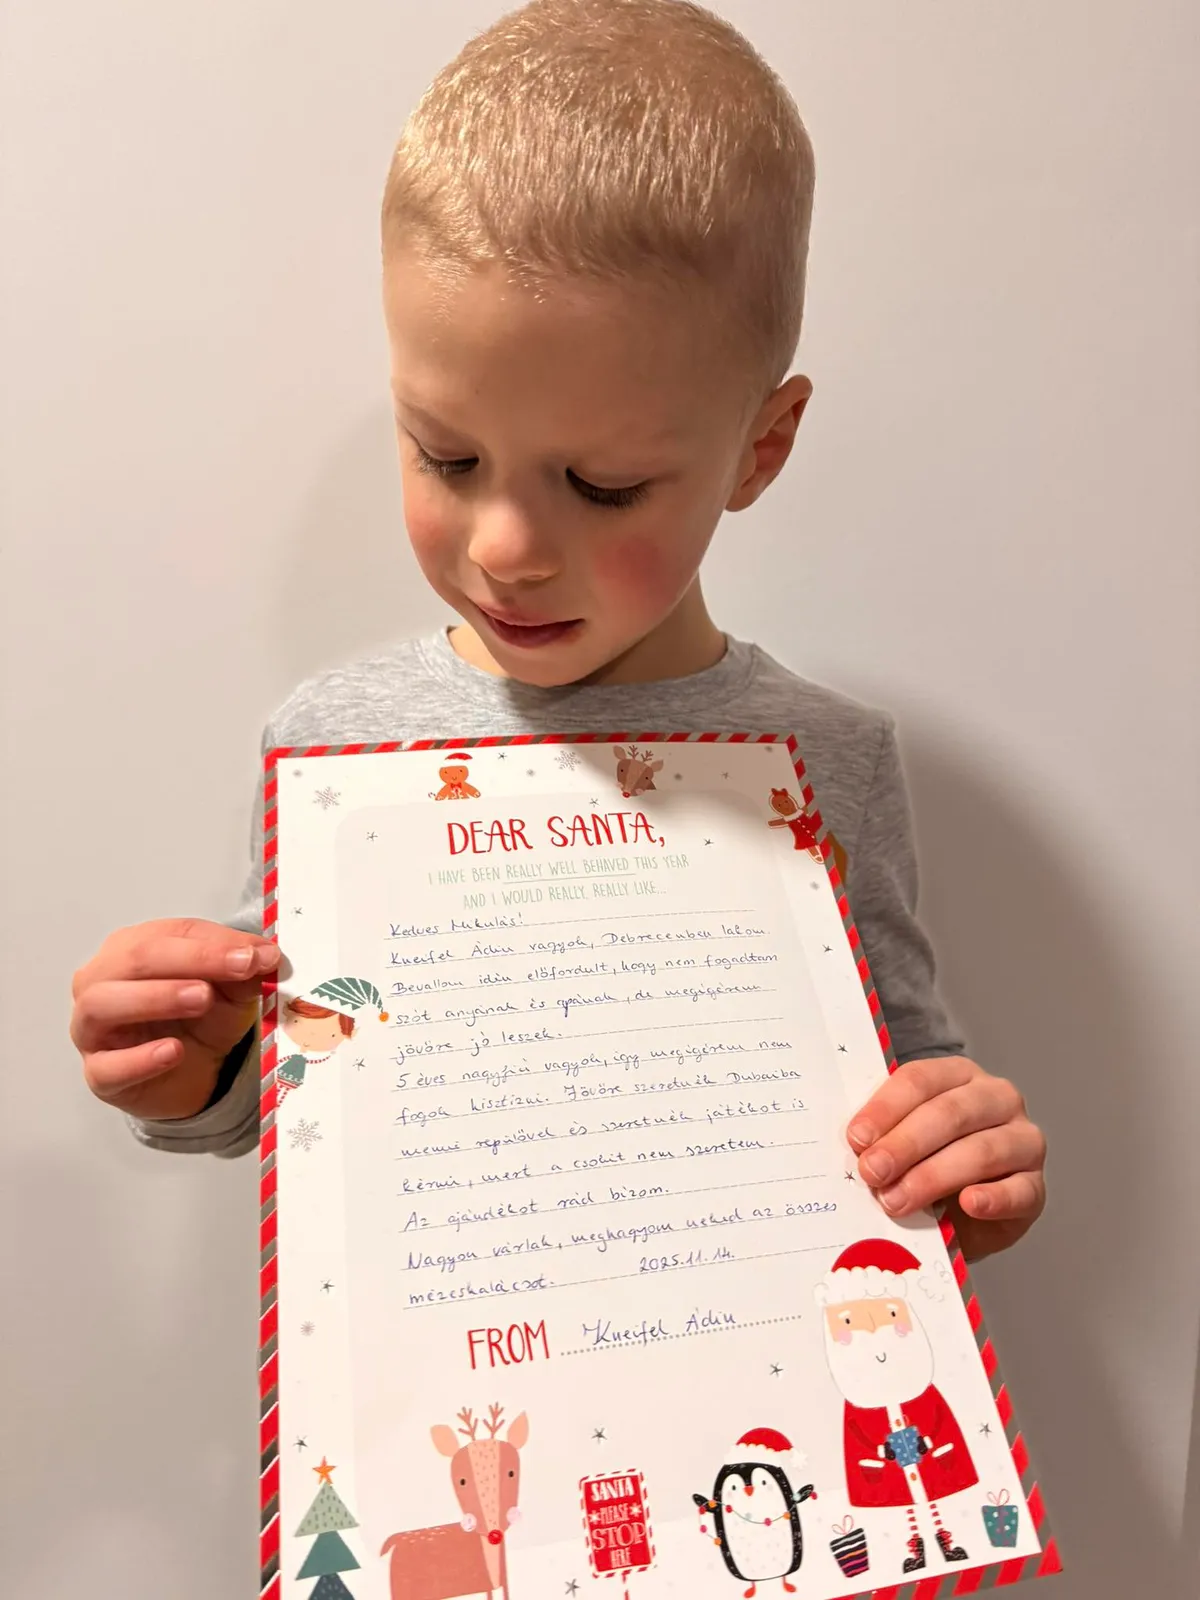 DEAR SANTA,
I HAVE BEEN REALLY WELL BEHAVED THIS YEAR
AND I WOULD REALLY, REALLY LIKE...
Kedves Mikulás!
Kneifel Ádin vagyok, Debrecenben lakom.
Bevallom idén előfordult, hogy nem fogadtam
szót anyának és apának, de megigérem
jövőre jó leszek.
5 éves nagyfiú vagyok, így megigérem nem
fogok hisztizni. Jövőre szeretnék Dubaiba
menni repülővel és szeretnék játékot is
kérni, mert a csokit nem szeretem.
Az ajándékot rád bízom.
Nagyon várlak, meghagyom neked az összes
mézeskalácsot. 2025.11.14.
FROM Kneifel Ádin
SANTA
PLEASE
STOP
HERE